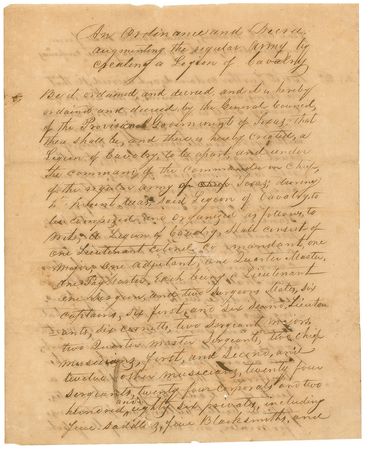 An Ordinance and Decree
augmenting the regular Army by
creating a Legion of Cavalry
Be it ordained and decreed and it is hereby
ordained and decreed by the General Council
of the Provisional Government of Texas, that
there shall be, and there is hereby created, a
Legion of Cavalry, to be apart and under
the command of the Commander in Chief
of the regular army of Texas, during
the present War, Said Legion of Cavalry to
be comprized and organized as follows, to
wit, A Legion of Cavalry shall consist of
one Lieutenant Colonel Commandant, one
Major, one Adjutant, one Quarter Master,
one Pay Master, Each being a Lieutenant
one Surgeon, and two Surgeons Mates, six
Captains, six first, and six second Lieuten
ants, six cornetts, two Sergeant majors
two Quarter Master Sergeants, two Chief
musicians, first, and second, and
twelve other musicians, twenty four
Sergeants, twenty four Corporals, and two
hundred and eighty six privates, including
five saddlers, five Blacksmiths, and